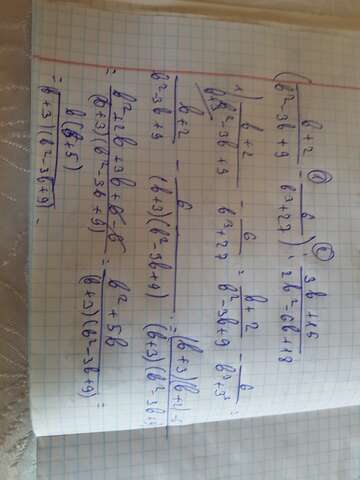 ① ②
( b+2 / b²-3b+9 - 6 / b³+27 ) : 3b+15 / 2b²-6b+18
1) b+2 / b²-3b+9 - 6 / b³+27 = b+2 / b²-3b+9 - 6 / b³+3³ =
b+2 / b²-3b+9 - 6 / (b+3)(b²-3b+9) = (b+3)(b+2)-6 / (b+3)(b²-3b+9)
= b²+2b+3b+6-6 / (b+3)(b²-3b+9) = b²+5b / (b+3)(b²-3b+9) =
= b(b+5) / (b+3)(b²-3b+9) =